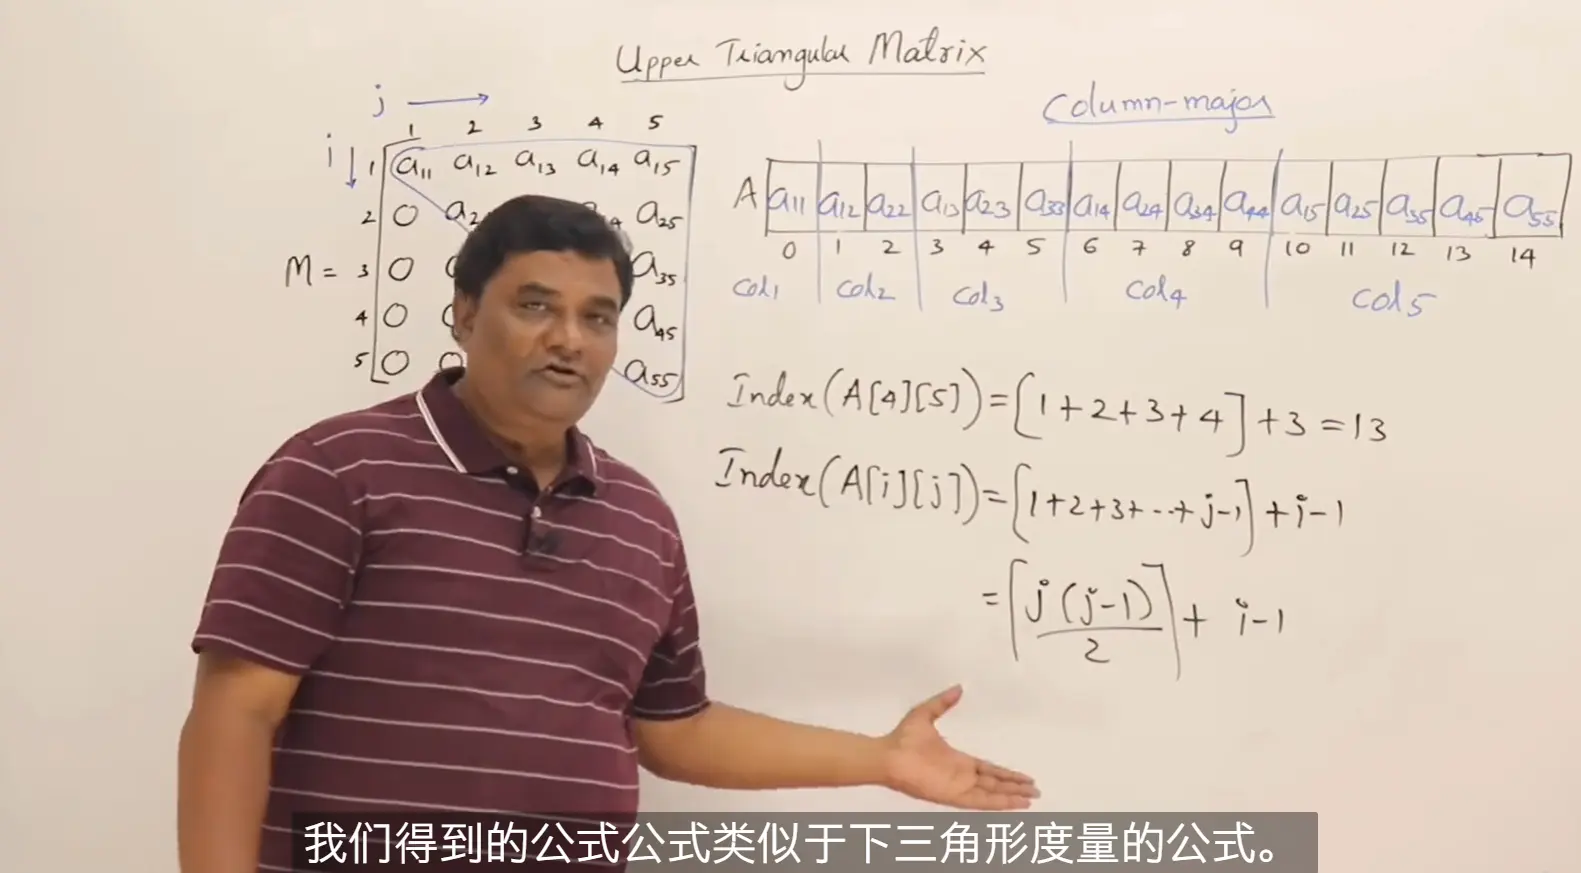 Upper Triangular Matrix
j →
1 2 3 4 5
i ↓
1 a11 a12 a13 a14 a15
2 0 a25
M = 3 0 a35
4 0 a45
5 0 0 a55
Column-major
A a11 a12 a22 a13 a23 a33 a14 a24 a34 a44 a15 a25 a35 a45 a55
0 1 2 3 4 5 6 7 8 9 10 11 12 13 14
col1 col2 col3 col4 col5
Index(A[4][5]) = [1+2+3+4] + 3 = 13
Index(A[i][j]) = [1+2+3+---+j-1] + i-1
= [j(j-1)/2] + i-1
我们得到的公式公式类似于下三角形度量的公式。